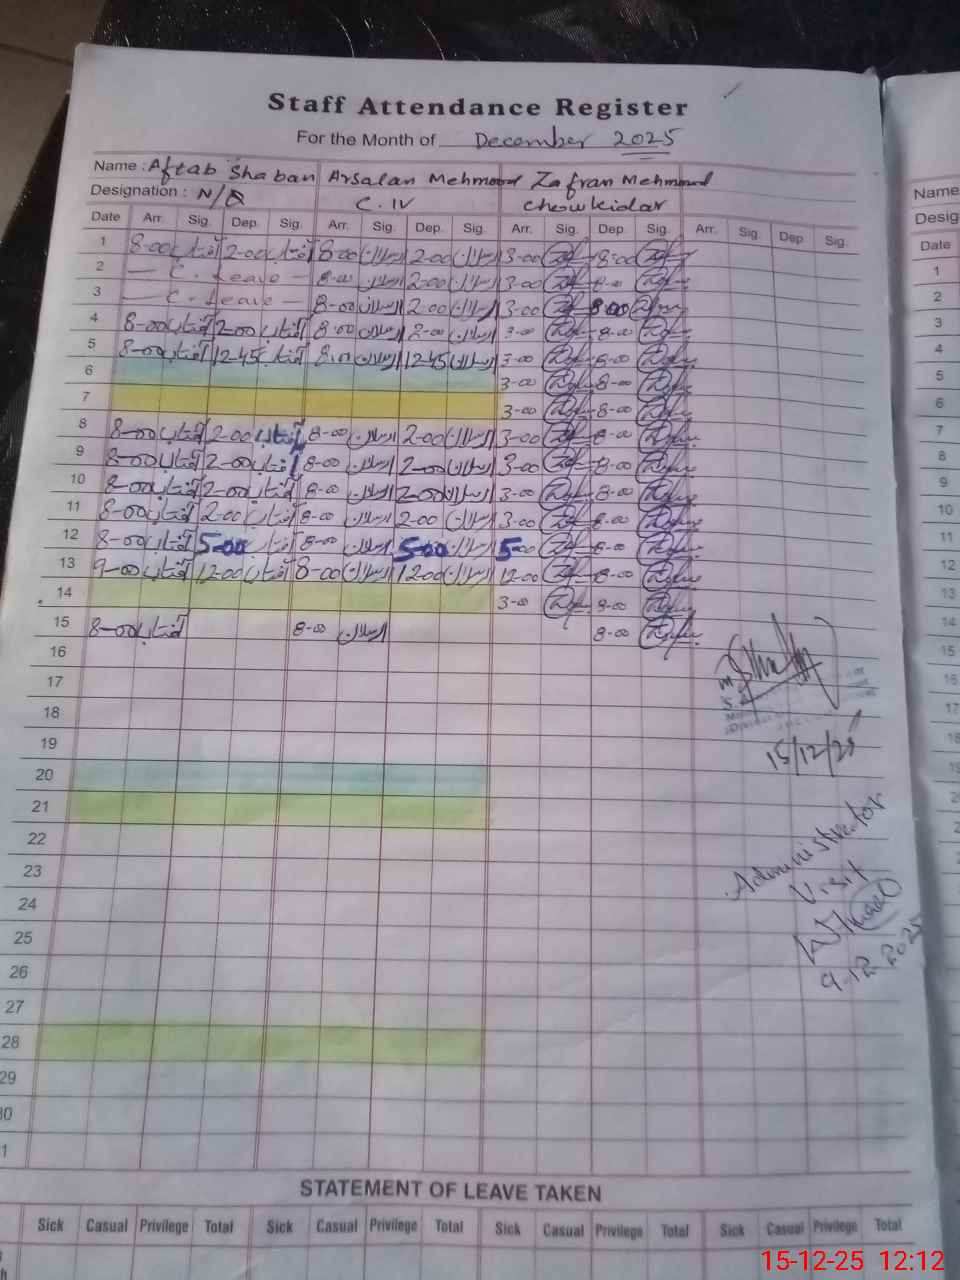 Staff Attendance Register
For the Month of December 2025
Name : Aftab Shaban Arsalan Mehmood Zafran Mehmood
Designation : N/Q C.IV Chowkidar
Date Arr. Sig. Dep. Sig. Arr. Sig. Dep. Sig. Arr. Sig. Dep. Sig. Arr. Sig. Dep. Sig.
1 8-00 آفتاب 2-00 آفتاب 8-00 ارسلان 2-00 ارسلان 3-00 8-00
2 — C. Leave — 8-00 ارسلان 2-00 ارسلان 3-00 8-00
3 — C. Leave — 8-00 ارسلان 2-00 ارسلان 3-00 8-00
4 8-00 آفتاب 2-00 آفتاب 8-00 ارسلان 2-00 ارسلان 3-00 8-00
5 8-00 آفتاب 12-45 آفتاب 8-00 ارسلان 12-45 ارسلان 3-00 8-00
6 3-00 8-00
7 3-00 8-00
8 8-00 آفتاب 2-00 آفتاب 8-00 ارسلان 2-00 ارسلان 3-00 8-00
9 8-00 آفتاب 2-00 آفتاب 8-00 ارسلان 2-00 ارسلان 3-00 8-00
10 8-00 آفتاب 2-00 آفتاب 8-00 ارسلان 2-00 ارسلان 3-00 8-00
11 8-00 آفتاب 2-00 آفتاب 8-00 ارسلان 2-00 ارسلان 3-00 8-00
12 8-00 آفتاب 5-00 آفتاب 8-00 ارسلان 5-00 ارسلان 5-00 8-00
13 9-00 آفتاب 12-00 آفتاب 8-00 ارسلان 12-00 ارسلان 12-00 8-00
14 3-00 8-00
15 8-00 آفتاب 8-00 ارسلان 8-00
16
17
18
19
20
21
22
23
24
25
26
27
28
29
30
15/12/25
Administrator
Visit
9.12.2025
STATEMENT OF LEAVE TAKEN
Sick Casual Privilege Total Sick Casual Privilege Total Sick Casual Privilege Total Sick Casual Privilege Total
Name
Desig
Date
1
2
3
4
5
6
7
8
9
10
11
12
13
14
15
16
17
18
15-12-25 12:12